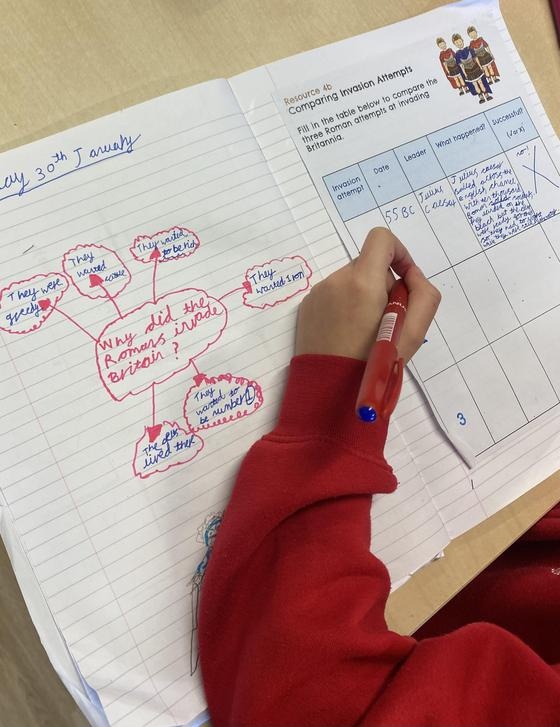 ay 30th January
They were
greedy
They wanted
They wanted
to be rich
They wanted iron
Why did the
Romans invade
Britain?
They
wanted to
be number 1
The
lived there
Resource 4b
Comparing Invasion Attempts
Fill in the table below to compare the
three Roman attempts at invading
Britannia.
Invasion
attempt
Date
Leader
What happened?
Successful?
(✓ or x)
55 BC
Julius
Caesar
Julius
sailed across the
english
with
Roman
they landed on the
but the
were ready
no!
X
3